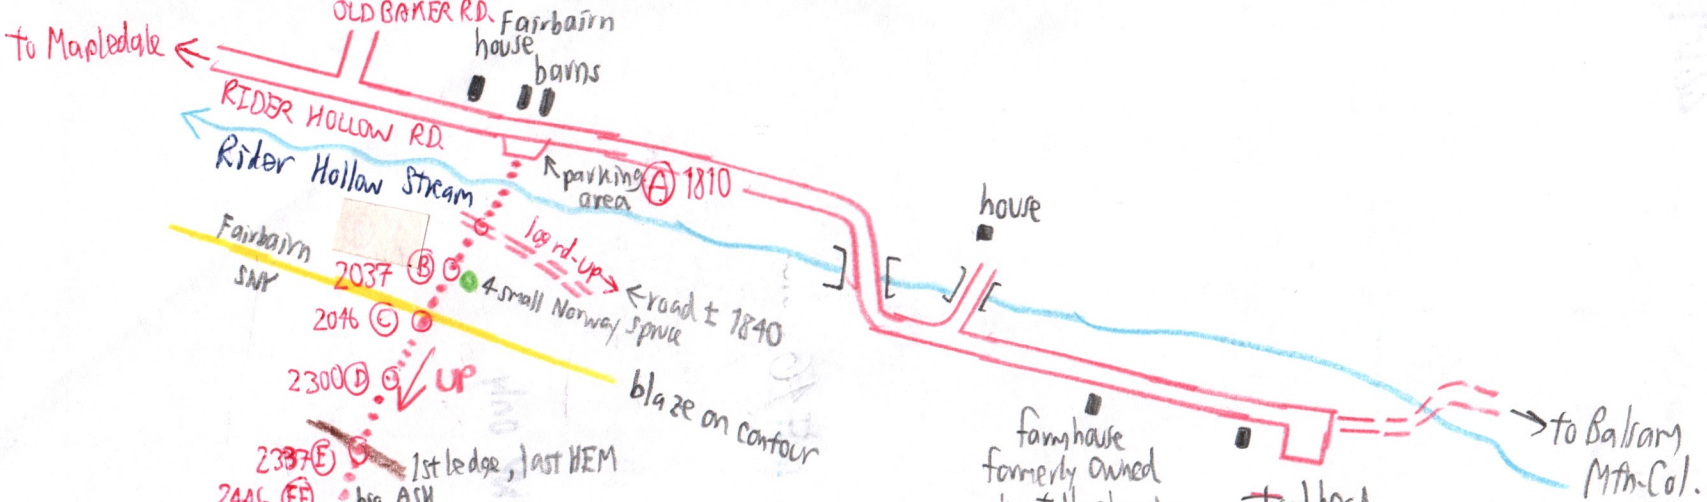 OLD BAKER RD.
Fairbairn
house
barns
to Mapledale
RIDER HOLLOW RD.
Rider Hollow Stream
parking
area
A 1810
house
log rd-up
Fairbairn
SNY
2037 B
4 small Norway
Spruce
road ± 1840
2046 C
2300 D
UP
blaze on contour
E
1st ledge, last HEM
2446 EE
big ASH
farmhouse
formerly owned
to Balsam
Mtn-Col.